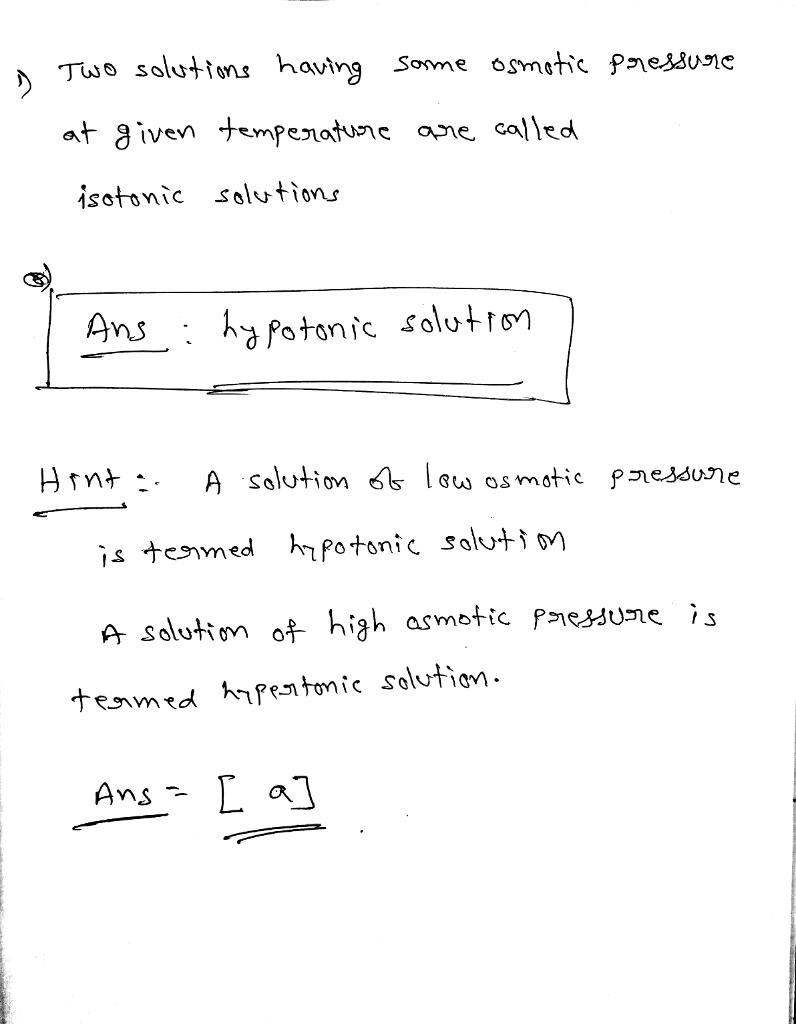 1) Two solutions having same osmotic pressure
at given temperature are called
isotonic solutions
Ans : hypotonic solution
Hint :- A solution of low osmotic pressure
is termed hypotonic solution
A solution of high osmotic pressure is
termed hypertonic solution.
Ans = [ a ]